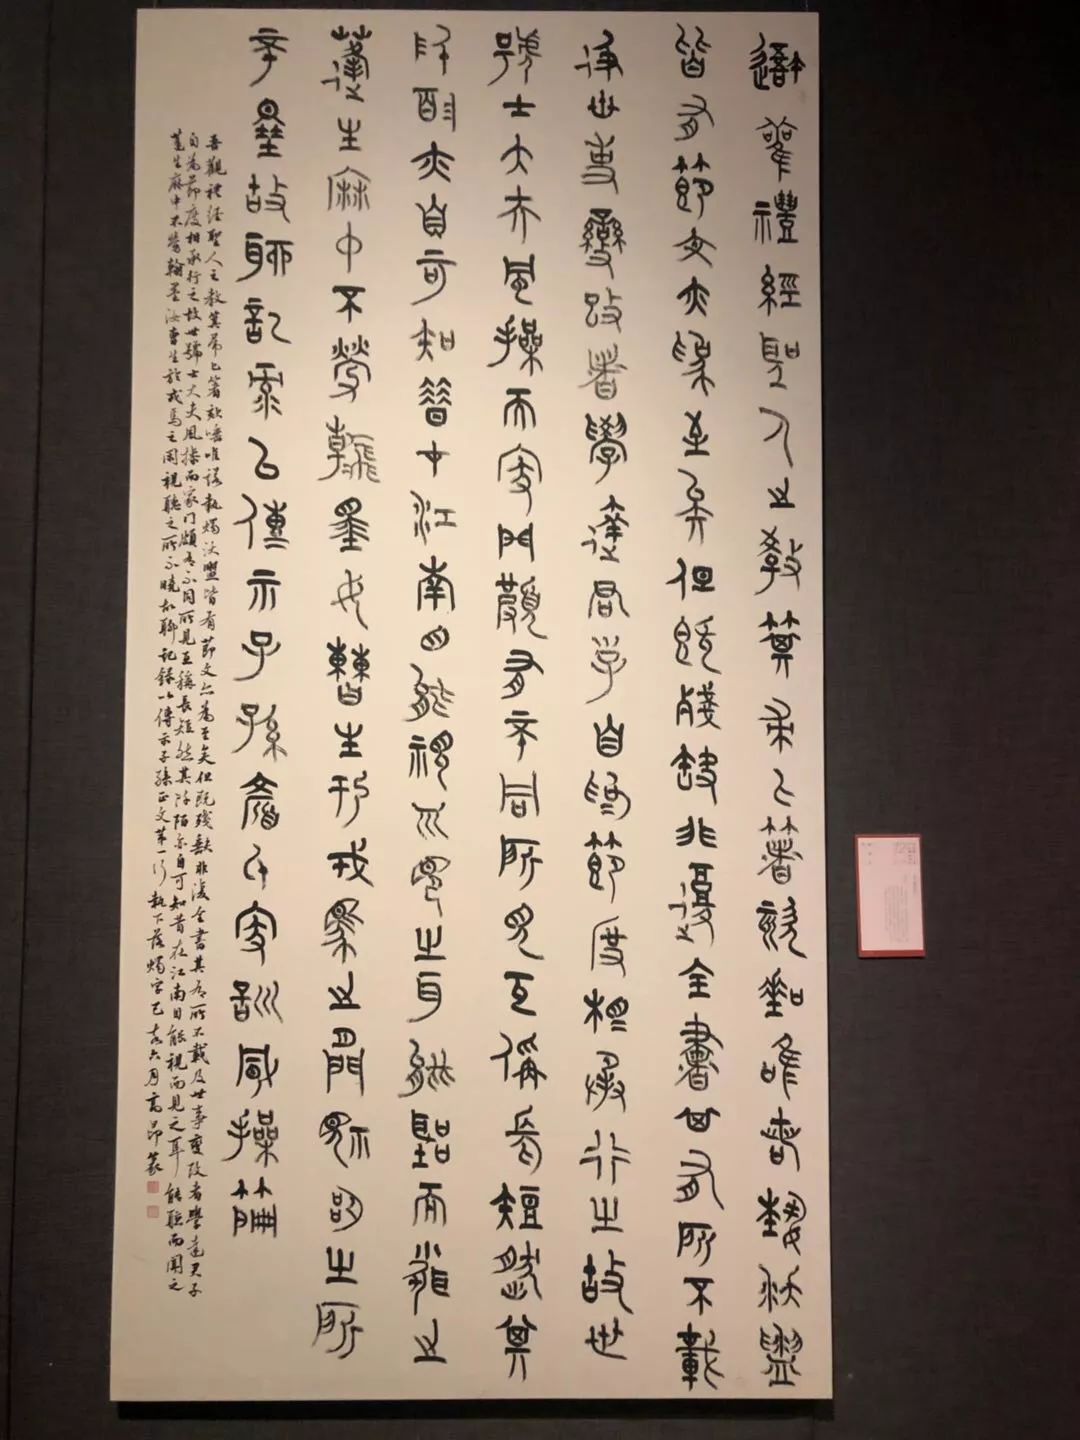 吾觀禮經聖人之教箕帚匕箸欬唾唯諾執沃盥
皆有節文亦為至矣但既殘缺非復全書其有所不載
及世事變改者學達君子自為節度相承行之故世
號士大夫風操而家門頗有不同所見互稱長短然其
阡陌亦自可知昔在江南目能視而見之耳能聽而聞之
蓬生麻中不勞翰墨汝曹生於戎馬之間視聽之所
不曉故聊記錄以傳示子孫顏氏家訓風操篇
吾觀禮經聖人之教箕帚匕箸欬唾唯諾執燭沃盥皆有節文亦為至矣但既殘缺非復全書其有所不載及世事變改者學達君子
自為節度相承行之故世號士大夫風操而家門頗有不同所見互稱長短然其阡陌亦自可知昔在江南目能視而見之耳能聽而聞之
蓬生麻中不勞翰墨汝曹生於戎馬之間視聽之所不曉故聊記錄以傳示子孫正文第一行執下落燭字己亥六月高昂篆